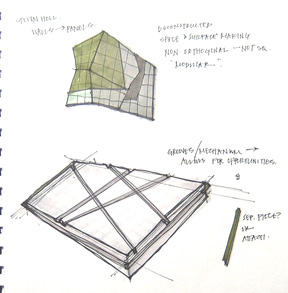 STEVEN HOLL
WALLS → PANELS
DECONSTRUCTED
SPACE & SURFACE MAKING
NON ORTHOGONAL → NOT SO
"MODULAR..."
GROOVES/MECHANISM →
ALLOWS FOR OPPORTUNITIES.
SEP. PIECE?
OR
ATTACH.